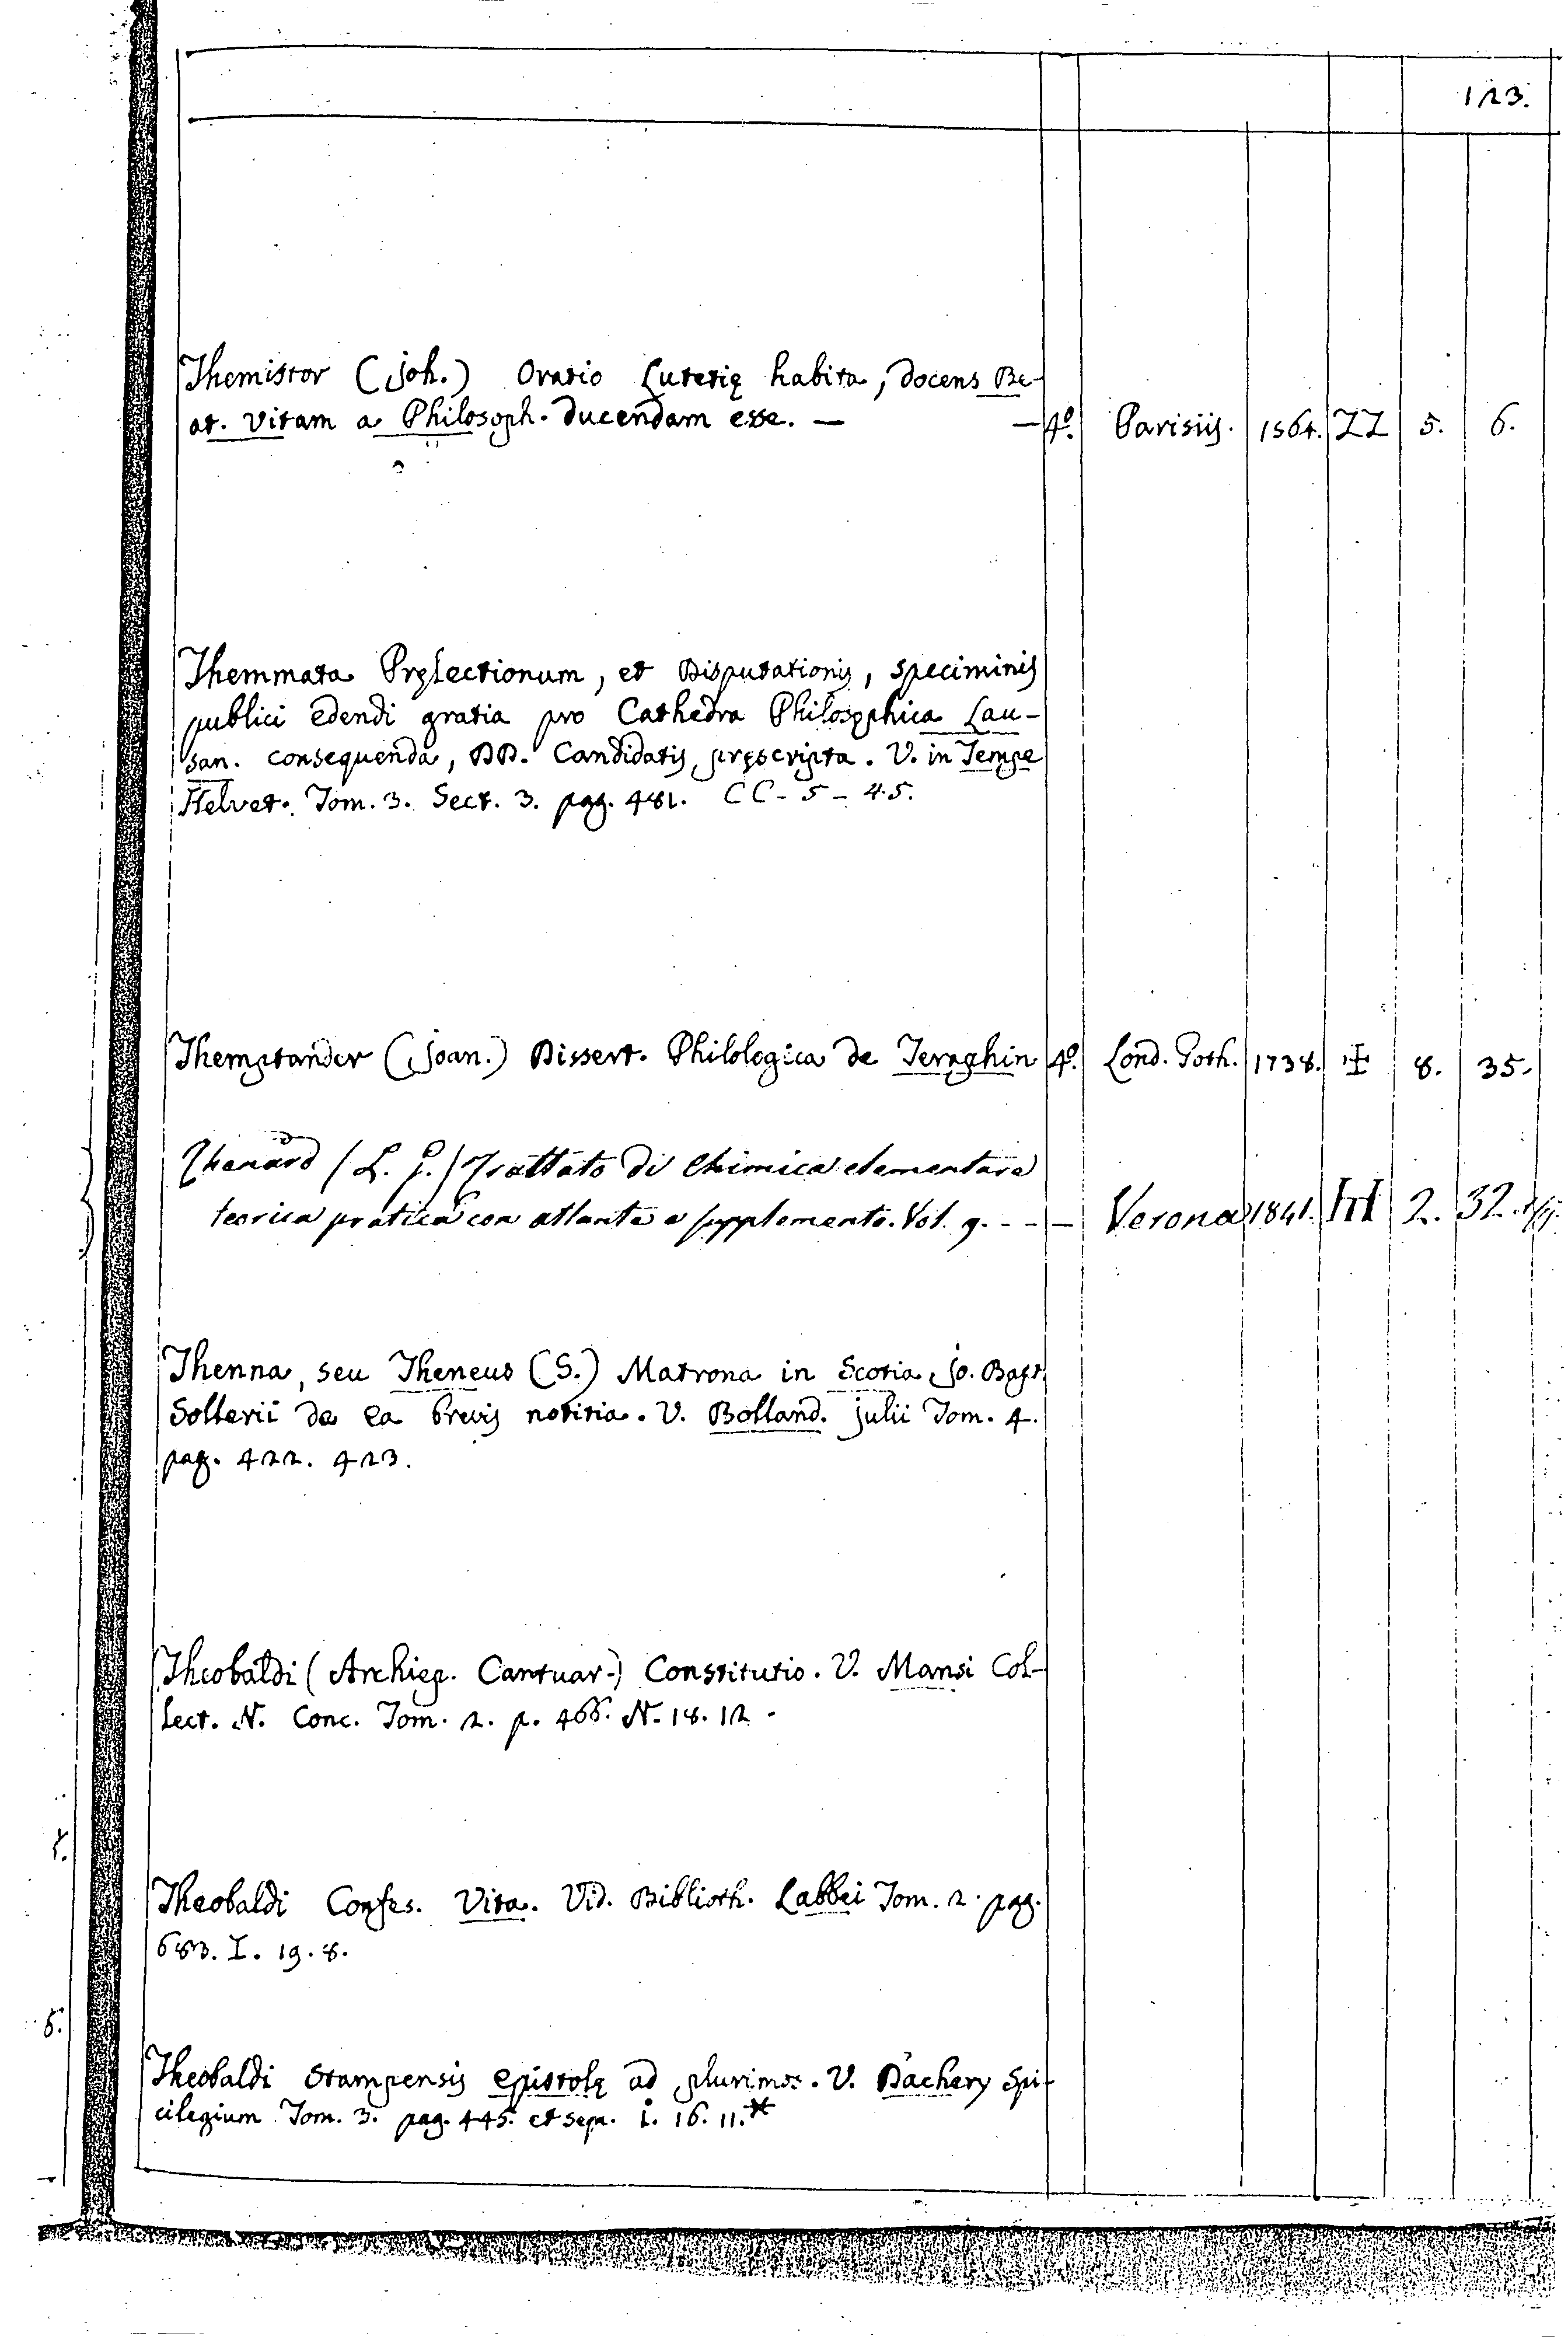 123.
Themistor (Joh.) Oratio Lutetię habita, docens Be-
at. vitam a Philosoph. ducendam esse. — — 4.º Parisiis. 1564. ZZ 5. 6.
Themmata Pręlectionum, et Disputationis, speciminis
publici edendi gratia pro Cathedra Philosophica Lau-
san. consequenda, DD. Candidatis pręscripta. V. in Tempe
Helvet. Tom. 3. Sect. 3. pag. 481. CC - 5 - 45.
Themptander (Joan.) Dissert. Philologica de Teraphin 4.º Lond. Goth. 1738. ‡ 8. 35.
Thenard (L. J.) Trattato di Chimica elementare
teorica pratica con atlante e supplemento. Vol. 9. - - - Verona 1841. HH 2. 32.
Thenna, seu Theneus (S.) Matrona in Scotia, Jo. Bapt.
Sollerii de ea brevis notitia. V. Bolland. Julii Tom. 4.
pag. 422. 423.
Theobaldi (Archiep. Cantuar.) Constitutio. V. Mansi Col-
lect. N. Conc. Tom. 2. p. 466. N. 18. 12.
Theobaldi Confes. Vita. Vid. Biblioth. Labbei Tom. 2. pag.
683. I. 19. 8.
Theobaldi Stampensis epistolę ad plurimos. V. Dachery Spi-
cilegium Tom. 3. pag. 445. et seqq. i. 16. 11.*